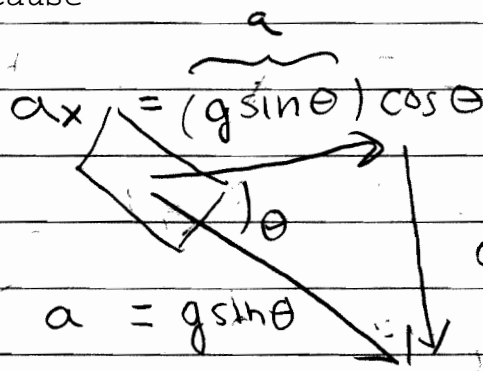 cause
a
aₓ = (g sinθ) cosθ
θ
a = g sinθ